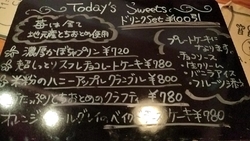 Today's Sweets
ドリンクSet ¥100引
苺は全て
地元産とちおとめ使用
濃厚かぼちゃプリン ¥720
しっとりスフレチョコレートケーキ ¥780
米粉のハニーアップルクランブル ¥800
たっぷりとちおとめのクラフティ ¥780
オレンジ ケーキ ¥780
プレートケーキに
なります。
チョコソース
生クリーム
バニラアイス
フルーツ添え